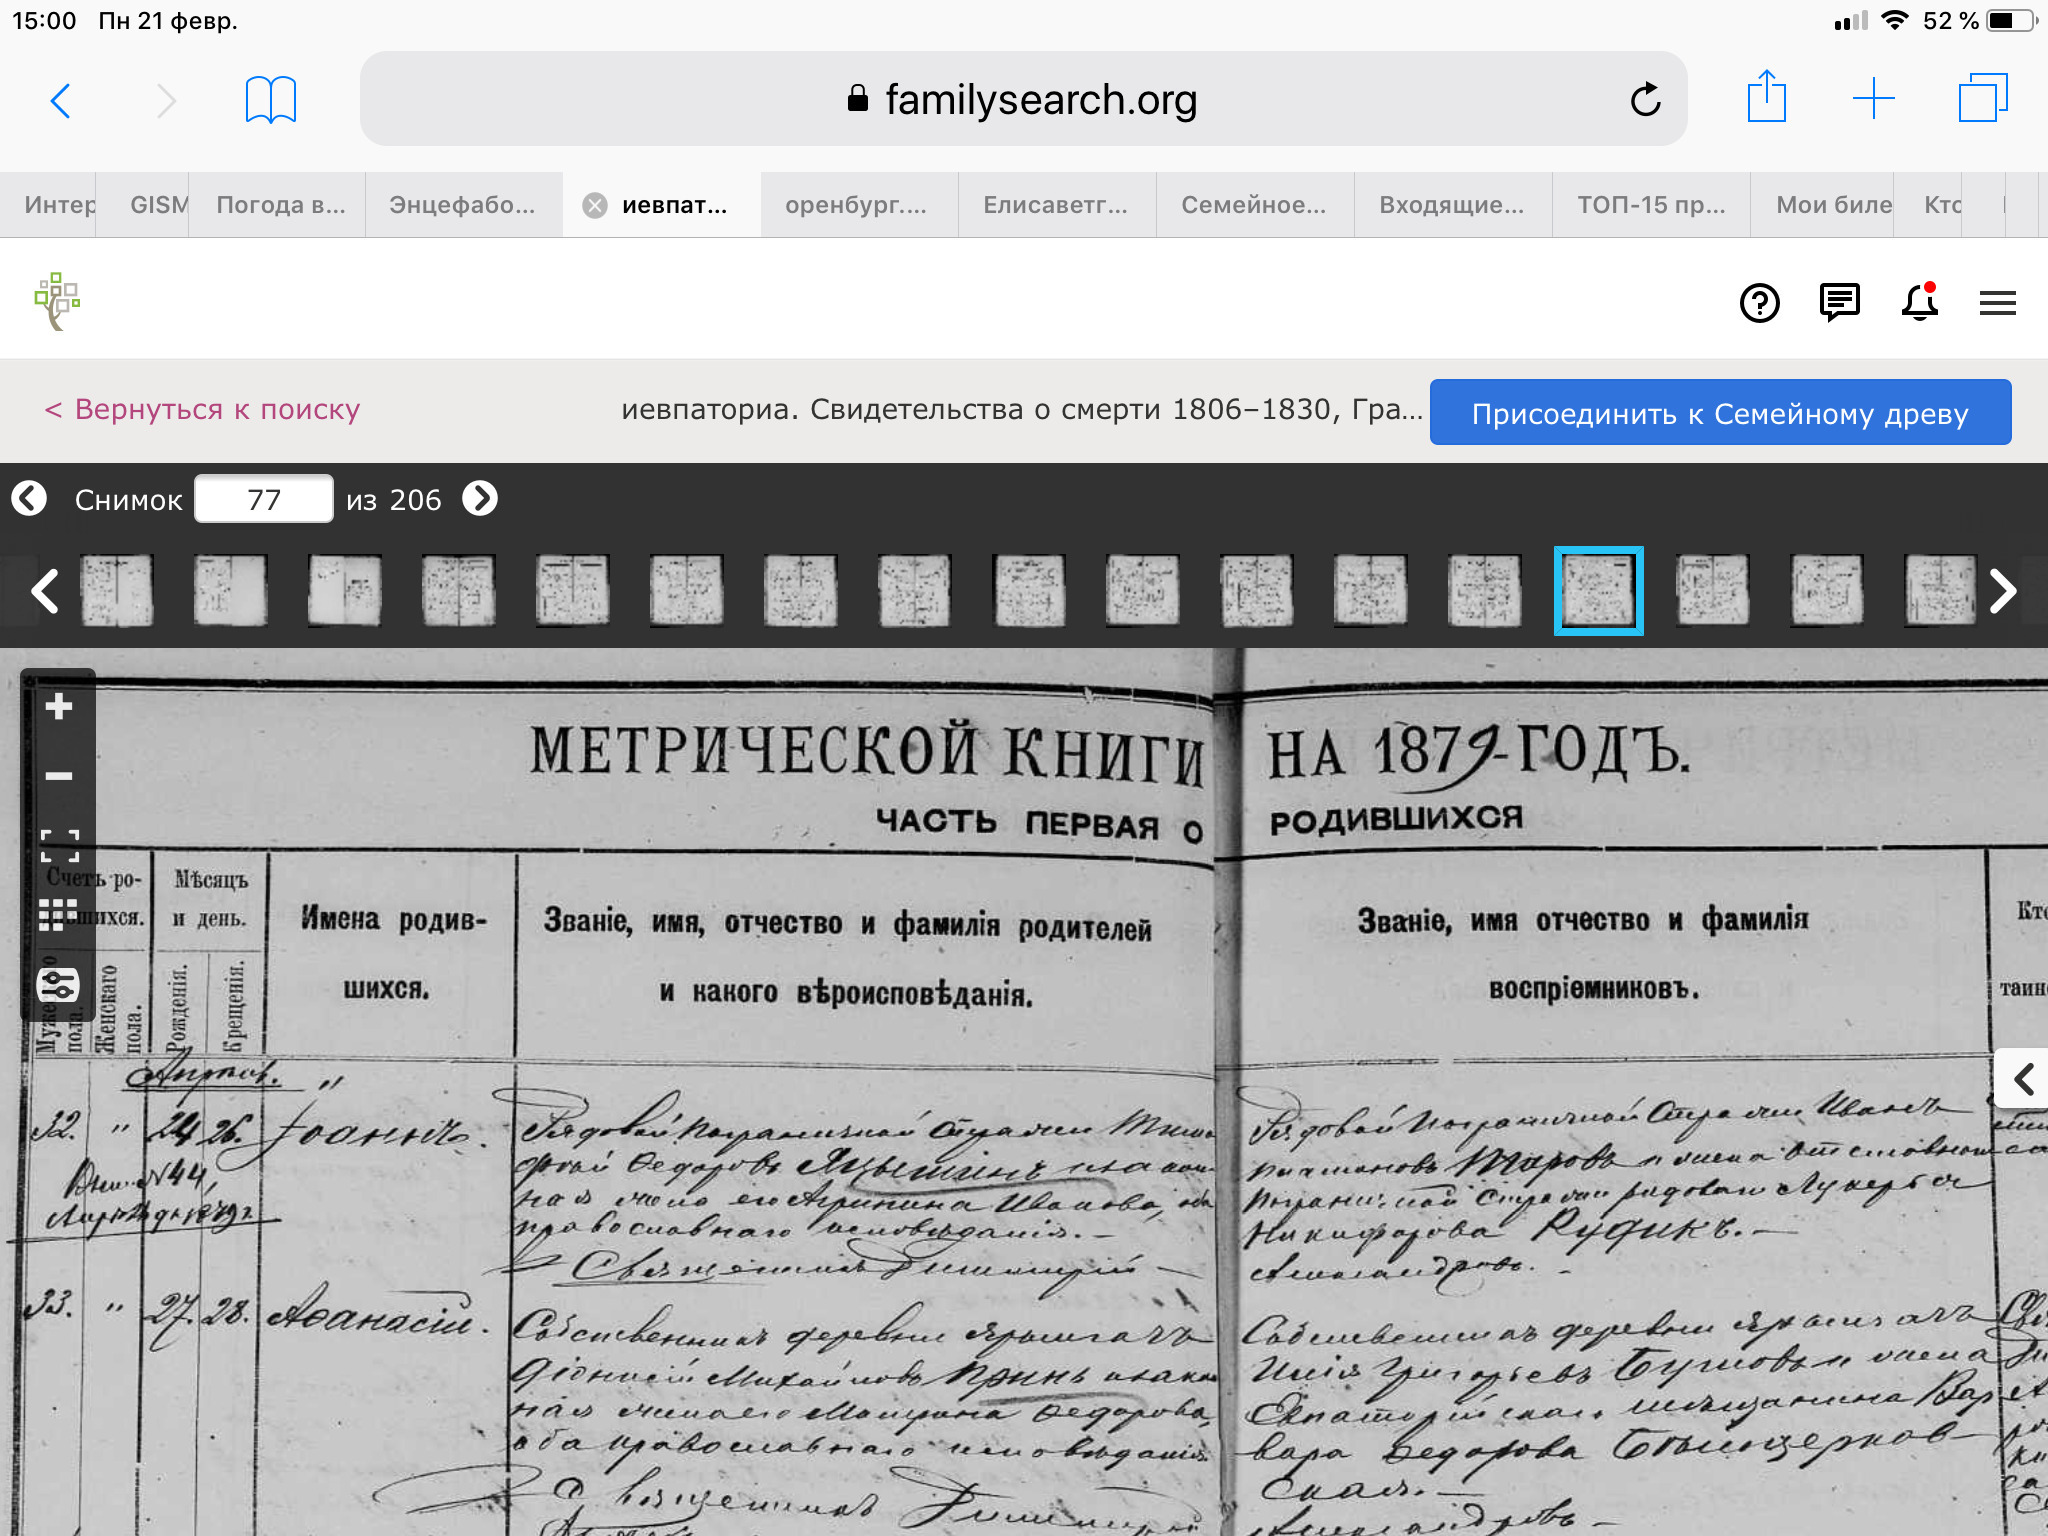 15:00 Пн 21 февр.
52 %
familysearch.org
Интер
GISM
Погода в...
Энцефабо...
иевпат...
оренбург....
Елисаветг...
Семейное...
Входящие...
ТОП-15 пр...
Мои биле
Кто
< Вернуться к поиску
иевпаториа. Свидетельства о смерти 1806–1830, Гра...
Присоединить к Семейному древу
Снимок 77 из 206
МЕТРИЧЕСКОЙ КНИГИ НА 1879 ГОДЪ.
ЧАСТЬ ПЕРВАЯ О РОДИВШИХСЯ
Счетъ ро-
дившихся.
Мужескаго пола.
Женскаго пола.
Мѣсяцъ
и день.
Рожденія.
Крещенія.
Имена родив-
шихся.
Званіе, имя, отчество и фамилія родителей
и какого вѣроисповѣданія.
Званіе, имя отчество и фамилія
воспріемниковъ.
Кто
таин
32. " 24 26. Іоаннъ.
№44,
Рядовой Пограничной Стражи
Федоровъ
ная жена его Агрипина Иванова, оба
православнаго исповѣданія. –
Священникъ Димитрій
Рядовой Пограничной Стражи Иванъ
Пограничной Стражи рядоваго Лукерья
Никифорова Рудикъ. –
Александровъ. –
33. " 27. 28. Аѳанасій.
Собственникъ деревни Ярылгачъ
Діонисій Михайловъ Принь и закон
ная жена его Матрона Федорова,
оба православнаго исповѣданія.
Священникъ Димитрій
Собственникъ деревни Ярылгачъ
Илія Григорьевъ и жена
Евпаторійскаго мещанина Вар
вара Федорова Бѣлоцерков-
ская. –
Александровъ –